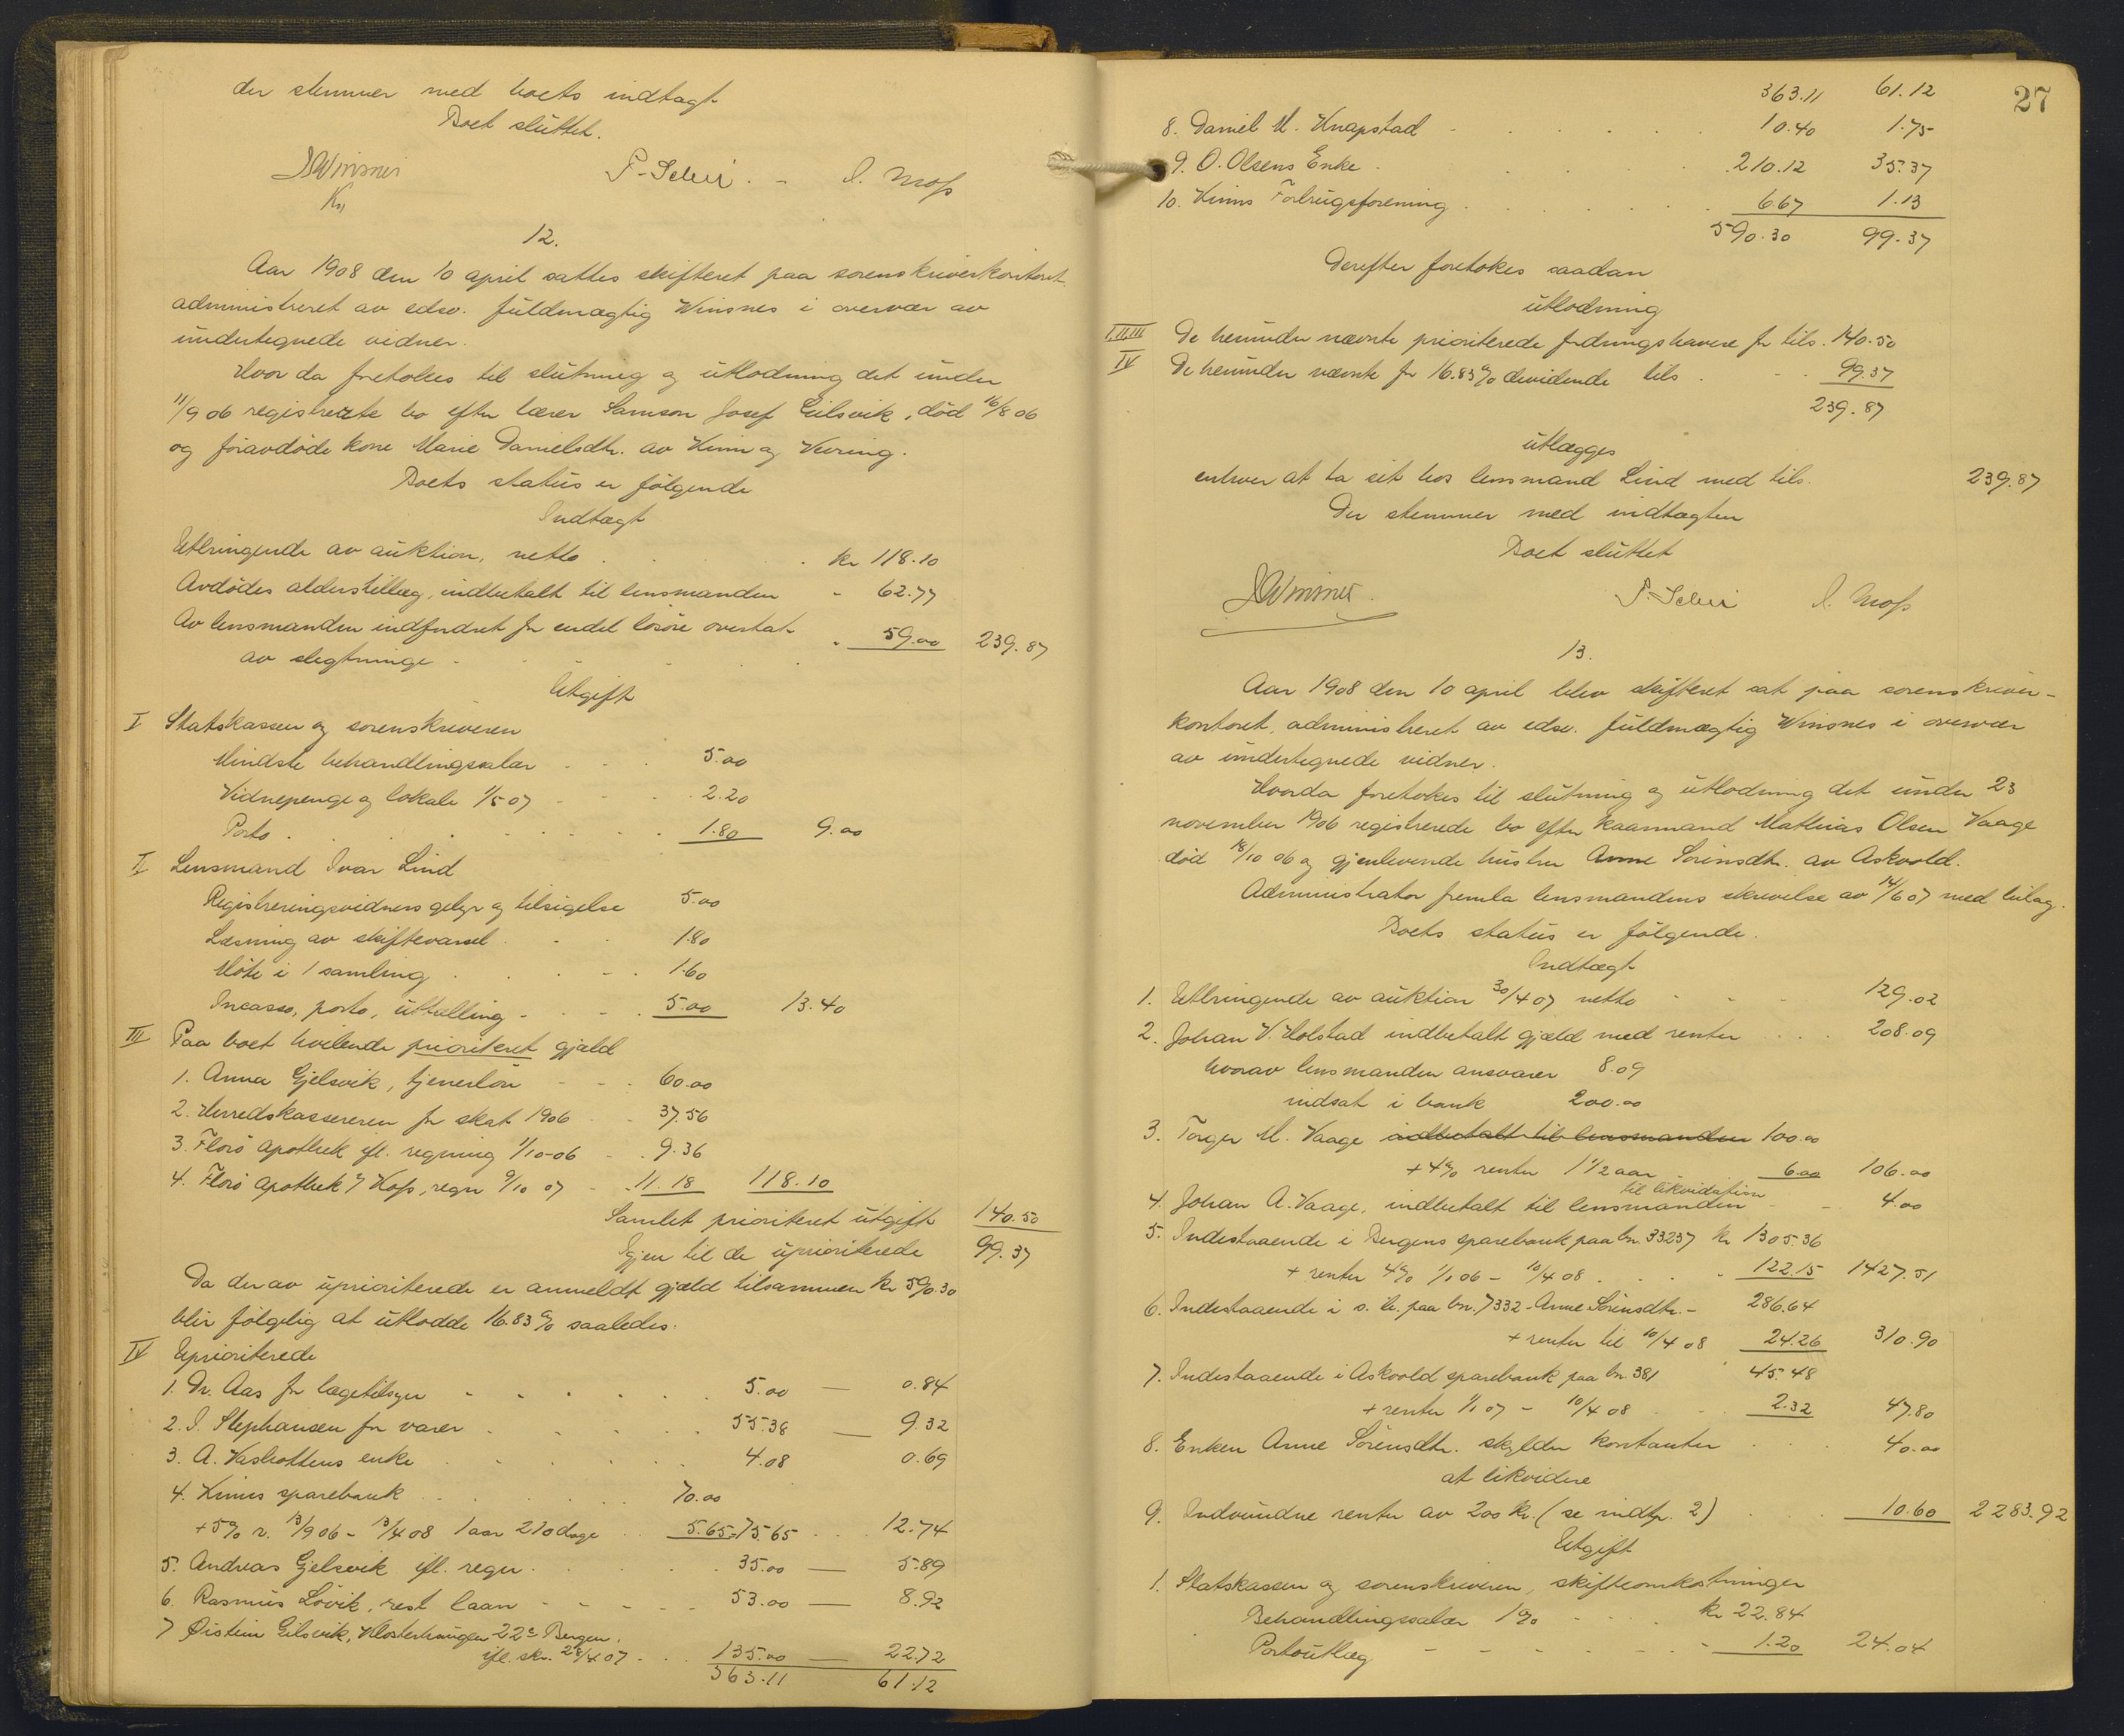 der stemmer med boets indtægt
Boet sluttet.
JWinsnes P. Schei. - I. Moss
Kst
12.
Aar 1908 den 10 april sattes skifteret paa sorenskriverkontoret
administreret av edsv. fuldmægtig Winsnes i overvær av
undertegnede vidner.
Hvor da foretokes til slutning og utlodning det under
11/9 06 registrerte bo efter lærer Samson Josef Eilsvik, død 16/8 06
og foravdøde kone Marie Danielsdtr. av Kinn og Vevring.
Boets status er følgende
Indtægt
Utbringende av auktion, netto . . kr 118.10
Avdødes alderstillæg, indbetalt til lensmanden - 62.77
Av lensmanden indfordret for endel løsøre overtat
av slegtninge - 59.00 239.87
Utgift
I Statskassen og sorenskriveren
Mindste behandlingssalær - - . 5.00
Vidnepenge og lokale 1/5 07 - - . 2.20
Porto . . 1.80 9.00
II Lensmand Ivar Lind
Registreringsvidners gebyr og tilsigelse 5.00
Læsning av skiftevarsel . - . 1.80
Møte i 1 samling . . - . 1.60
Incasso, porto, uttælling - . - . 5.00 13.40
III Paa boet hvilende prioriteret gjæld
1. Anna Gjelsvik, tjenerløn - - . 60.00
2. Herredskassereren for skat 1906 . . 37.56
3. Florø apothek ifl. regning 1/10-06 - . 9.36
4. Florø apothek v/ Hoss, regn 9/10 07 - 11.18 118.10
Samlet prioriteret utgift 140.50
Igjen til de uprioriterede 99.37
Da der av uprioriterede er anmeldt gjæld tilsammen kr 590.30
blir følgelig at utlodde 16.83 % saaledes:
IV Uprioriterede
1. Dr. Aas for lægetilsyn - - - . . 5.00 — 0.84
2. I. Stephansen for varer - . . . 55.38 — 9.32
3. A. Vasbottens enke . . . . 4.08 0.69
4. Kinns sparebank . . . . 70.00
+ 5% r. 13/9 06 - 13/4 08 1 aar 210 dage . . 5.65 = 75.65 . . . 12.74
5. Andreas Gjelsvik ifl. regn . . . . 35.00 — 5.89
6. Rasmus Løvik, rest laan - - - - - 53.00 — 8.92
7 Øistein Eilsvik, Klosterhaugen 22c Bergen,
ifl. skr. 28/4 07 - . . 135.00 — 22.72
363.11 61.12
27
363.11 61.12
8. Daniel M. Knapstad - . . . . 10.40 1.75
9. O. Olsens Enke . . . . . 210.12 35.37
10. Kinns Forbrugsforening . . . . 6.67 1.13
590.30 99.37
Derefter foretokes saadan
utlodning
I, II, III De herunder nævnte prioriterede fordringshavere for tils. 140.50
IV De herunder nævnte for 16.83 % dividende tils . - . 99.37
239.87
utlægges
enhver at ta sit hos lensmand Lind med tils. 239.87
Der stemmer med indtægten
Boet sluttet
JWinsnes. P. Schei I. Moss
13.
Aar 1908 den 10 april blev skifteret sat paa sorenskriver-
kontoret, administreret av edsv. fuldmægtig Winsnes i overvær
av undertegnede vidner.
Hvorda foretokes til slutning og utlodning det under 23
november 1906 registrerede bo efter kaarmand Mathias Olsen Vaage
død 18/10 06 og gjenlevende hustru Anne Sørensdtr. av Askvold.
Administrator fremla lensmandens skrivelse av 14/6 07 med bilag.
Boets status er følgende.
Indtægt
1. Utbringende av auktion 30/4 07 netto - - - 129.02
2. Johan V. Holstad indbetalt gjæld med renter . . . . 208.09
hvorav lensmanden ansvarer 8.09
indsat i bank 200.00
3. Torger M. Vaage indbetalt til lensmanden 100.00
+ 4% renter 1 1/2 aar - 6.00 106.00
4. Johan A. Vaage, indbetalt til lensmanden til likvidation - - 4.00
5. Indestaaende i Bergens sparebank paa bn. 33237 kr 1305.36
+ renter 4% 1/1 06 - 10/4 08 . . . - 122.15 1427.51
6. Indestaaende i s. b. paa bn. 7332 - Anne Sørensdtr. - 286.64
+ renter til 10/4 08 24.26 310.90
7. Indestaaende i Askvold sparebank paa bn. 381 45.48
+ renter 1/1 07 - 10/4 08 . - 2.32 47.80
8. Enken Anne Sørensdtr. skylder kontanter . . . 40.00
at likvidere
9. Indvundne renter av 200 kr. (se indtg. 2) . . . 10.60 2283.92
Utgift
1. Statskassen og sorenskriveren, skifteomkostninger
Behandlingssalær 1% - . . . kr 22.84
Portoutlæg - - - - - - 1.20 24.04